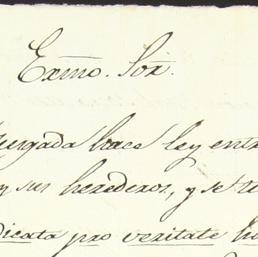 Exmo. Sor.
juzgada hace ley entr
y sus herederos, y se te
dicata pro veritate ha